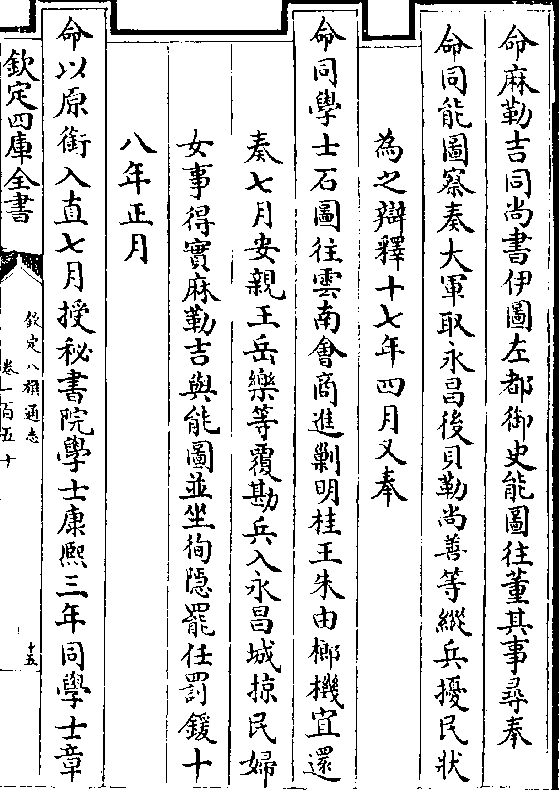 命麻勒吉同尚書伊圖左都御史能圖往董其事尋奉
命同能圖察奏大軍取永昌後貝勒尚善等縱兵擾民狀
為之辯釋十七年四月又奉
命同學士石圖往雲南會商進剿明桂王朱由榔機宜還
奏七月安親王岳樂等覆勘兵入永昌城掠民婦
女事得實麻勒吉與能圖並坐徇隱罷任罰鍰十
八年正月
命以原銜入直七月授秘書院學士康熙三年同學士章
欽定四庫全書
欽定八旗通志
卷一百五十
十五